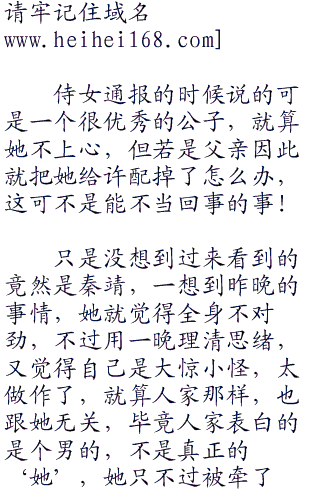 请牢记住域名
www.heihei168.com]
侍女通报的时候说的可
是一个很优秀的公子，就算
她不上心，但若是父亲因此
就把她给许配掉了怎么办，
这可不是能不当回事的事！
只是没想到过来看到的
竟然是秦靖，一想到昨晚的
事情，她就觉得全身不对
劲，不过用一晚理清思绪，
又觉得自己是大惊小怪，太
做作了，就算人家那样，也
跟她无关，毕竟人家表白的
是个男的，不是真正的
‘她’，她只不过被牵了